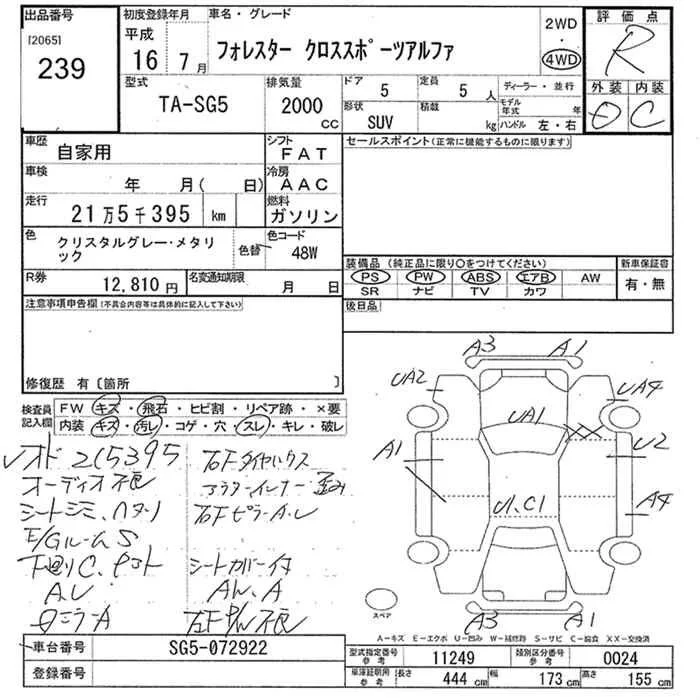 出品番号
[2065]
239
初度登録年月
平成
16 年 7 月
車名・グレード
フォレスター クロススポーツアルファ
2WD
・
4WD
評価点
R
外装 内装
D C
型式
TA-SG5
排気量
2000 CC
ドア 5
定員 5 人
形状 SUV
積載 kg
ディーラー・並行
モデル年式 年
ハンドル 左・右
車歴
自家用
シフト
FAT
車検
年 月( 日)
冷房
AAC
走行
21万5千395 km
燃料
ガソリン
色
クリスタルグレー・メタリック
色替
色コード
48W
R券
12,810円
名変通知期限
月 日
セールスポイント(正常に機能するものに限ります)
装備品(純正品に限り○をつけてください)
PS PW ABS エアB AW
SR ナビ TV カワ
新車保証書
有・無
後日品
注意事項申告欄(不具合内容等は具体的に記入して下さい)
修復歴 有〔箇所 〕
検査員記入欄
FW キズ・飛石・ヒビ割・リペア跡・×要
内装 キズ・汚レ・コゲ・穴・スレ・キレ・破レ
メオド 215395
オーディオ不良
シートシミ、ハタリ
E/GルームS
下廻りC、
A.U
右Fタイヤハウス
インナー歪み
右FピラーA.U
シートカバー付
AW、A
A3 A1
UA2 UA4
UA1
A1 U2
U1、C1
A4
A3 A1
スペア
A-キズ E-エクボ U-凹み W-補修跡 S-サビ C-腐食 XX-交換済
車台番号
SG5-072922
登録番号
型式指定番号 参考
11249
類別区分番号 参考
0024
車庫証明用 参考
長さ 444 cm
幅 173 cm
高さ 155 cm